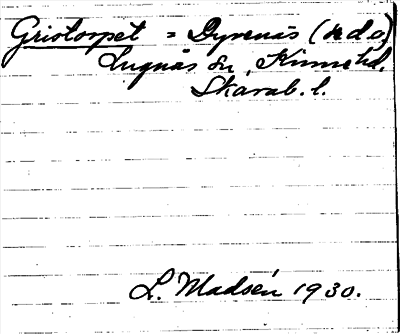 Gristorpet = Dyrenäs (se d.o.)
Lugnås sn, Kinne hd.
Skarab. l.
L. Madsén 1930.